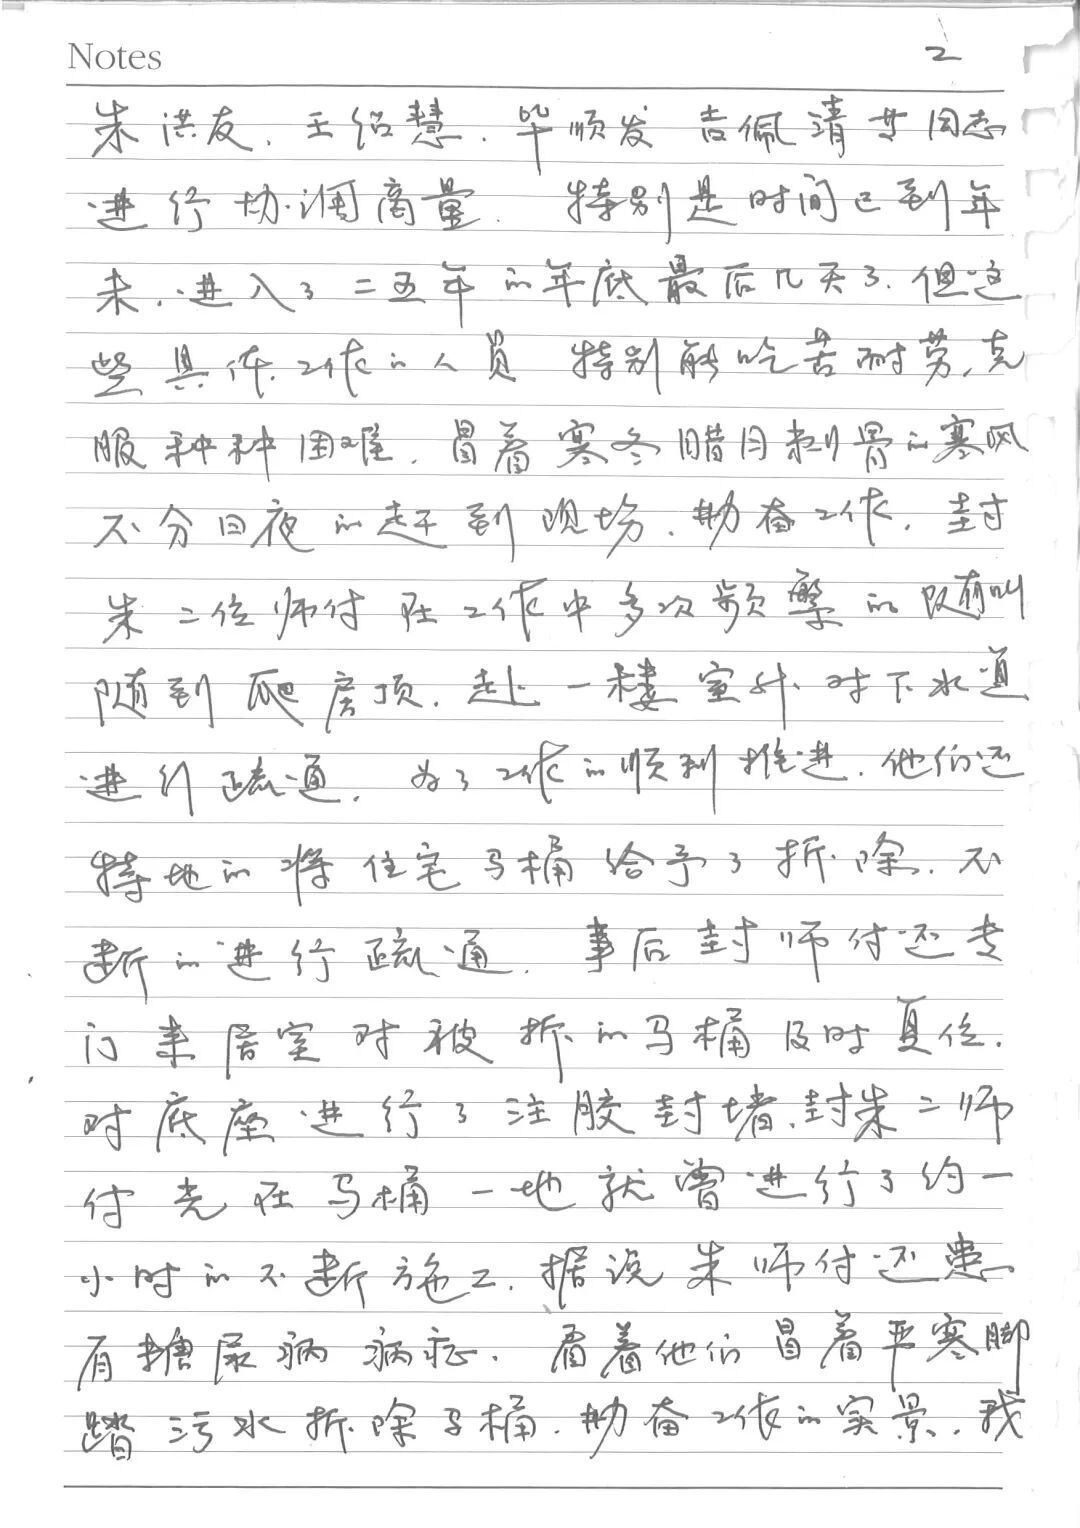 Notes
2
朱洪友、王绍慧、毕顺发 吉佩清等同志
进行协调商量。特别是时间已到年
末，进入了二五年的年底最后几天了，但这
些具体工作的人员 特别能吃苦耐劳，克
服种种困难，冒着寒冬腊月刺骨的寒风
不分日夜的赶到现场，勤奋工作，封
朱二位师付在工作中多次频繁的随叫
随到爬房顶，赴一楼室外对下水道
进行疏通，为了工作的顺利推进，他们还
特地的将住宅马桶给予了拆除，不
断的进行疏通，事后封师付还专
门来居室对被拆的马桶及时复位，
对底座进行了注胶封堵，封朱二师
付光在马桶一地就曾进行了约一
小时的不断施工，据说朱师付还患
有糖尿病病症，看着他们冒着严寒脚
踏污水拆除马桶，勤奋工作的实景，我